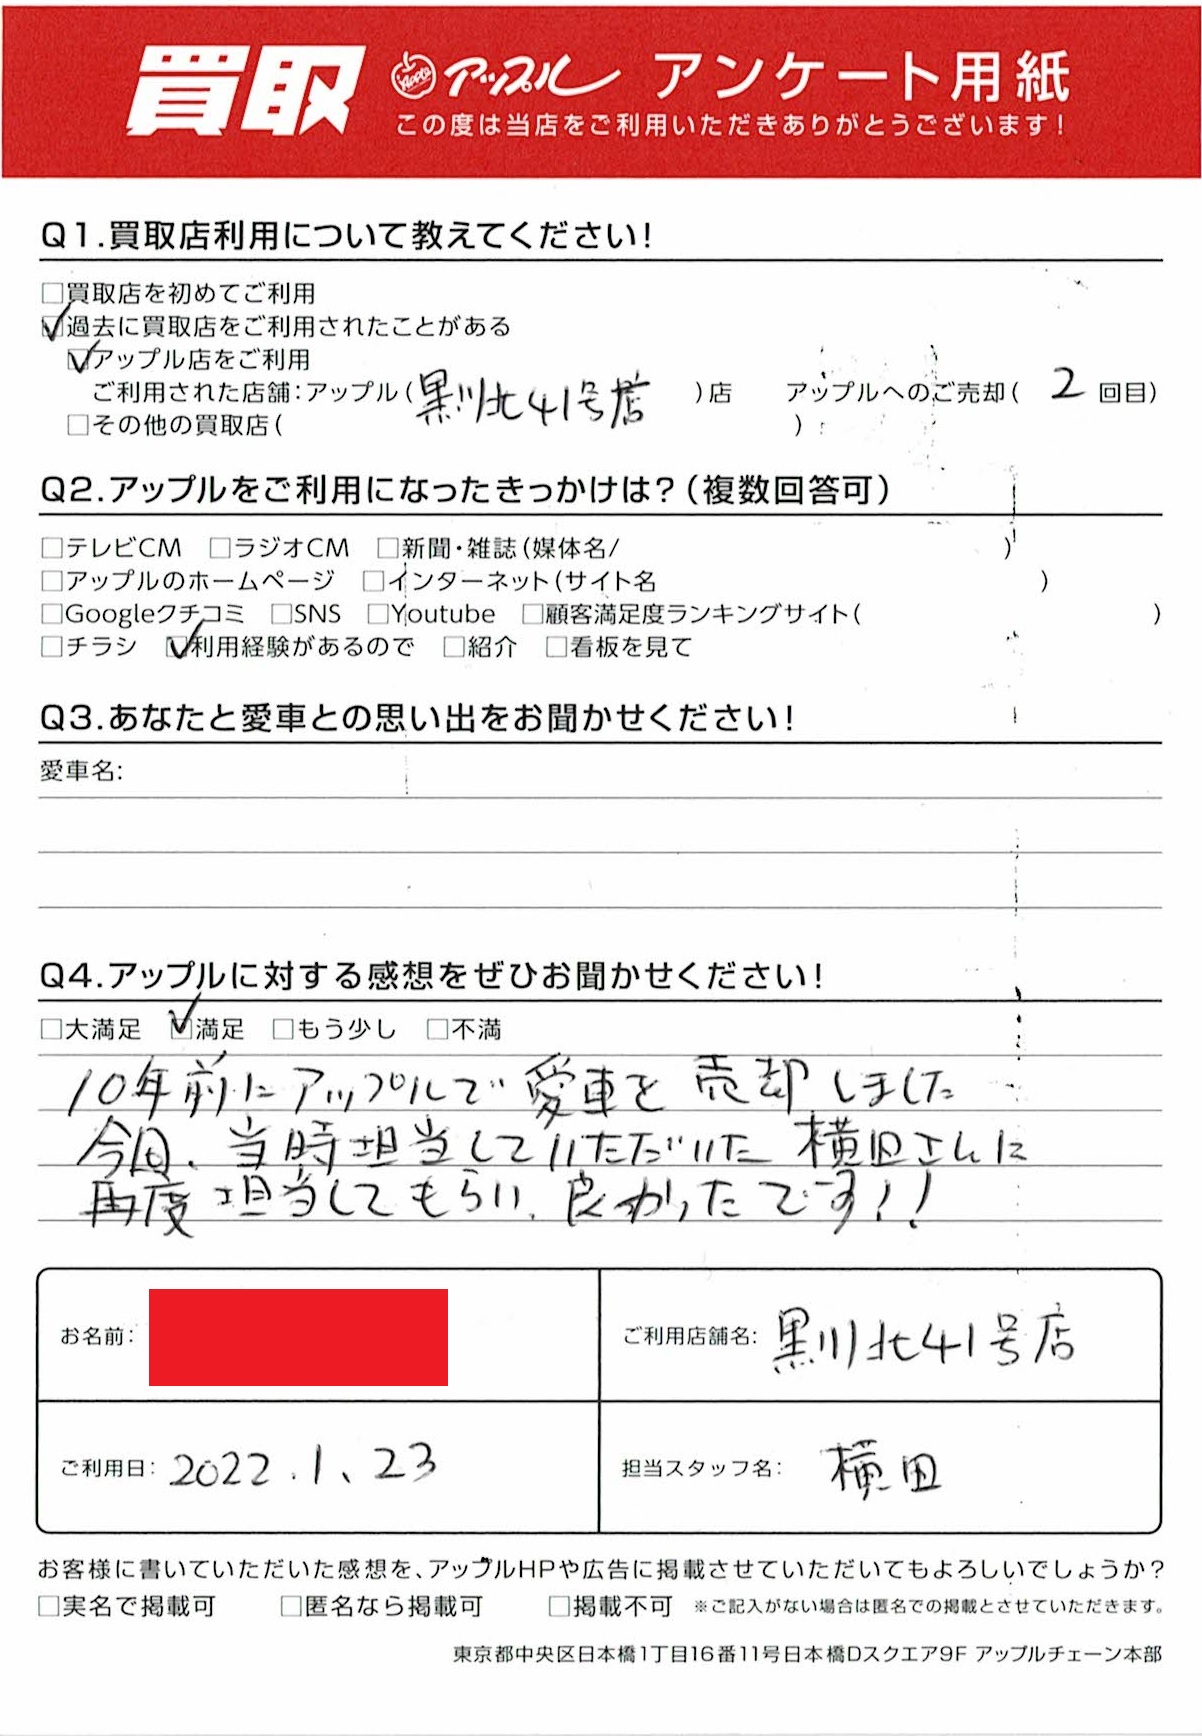 買取 Apple アップル アンケート用紙
この度は当店をご利用いただきありがとうございます!
Q1.買取店利用について教えてください!
□買取店を初めてご利用
☑過去に買取店をご利用されたことがある
☑アップル店をご利用
ご利用された店舗:アップル(黒川北41号店)店 アップルへのご売却(2回目)
□その他の買取店( )
Q2.アップルをご利用になったきっかけは?(複数回答可)
□テレビCM □ラジオCM □新聞・雑誌(媒体名/ )
□アップルのホームページ □インターネット(サイト名 )
□Googleクチコミ □SNS □Youtube □顧客満足度ランキングサイト( )
□チラシ ☑利用経験があるので □紹介 □看板を見て
Q3.あなたと愛車との思い出をお聞かせください!
愛車名:
Q4.アップルに対する感想をぜひお聞かせください!
□大満足 ☑満足 □もう少し □不満
10年前にアップルで愛車を売却しました
今回、当時担当していただいた横田さんに
再度担当してもらい、良かったです!!
お名前: ご利用店舗名: 黒川北41号店
ご利用日: 2022.1、23 担当スタッフ名: 横田
お客様に書いていただいた感想を、アップルHPや広告に掲載させていただいてもよろしいでしょうか?
□実名で掲載可 □匿名なら掲載可 □掲載不可 ※ご記入がない場合は匿名での掲載とさせていただきます。
東京都中央区日本橋1丁目16番11号日本橋Dスクエア9F アップルチェーン本部